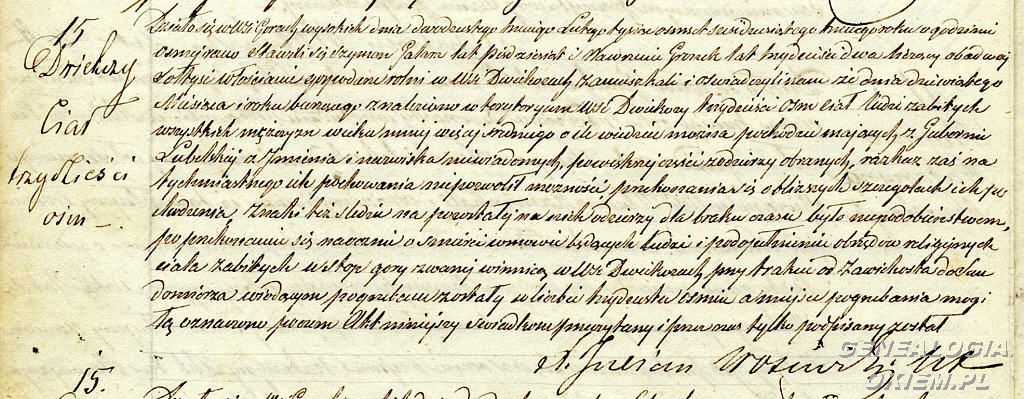 15.
Dwikozy
Ciał
trzydzieści
osm –.
Działo się w Wsi Gorach wysokich dnia dwudziestego trzeciego Lutego tysiąc osmset sześćdziesiątego trzeciego roku o godzinie
osmej rano Stawili się Szymon lat pięćdziesiąt i Wawrzeniec lat trzydzieści dwa liczący obadwaj
Sołtysi włościanie gospodarze rolni w Wsi Dwikozach zamieszkali i oświadczyli nam że dnia dziewiątego
Miesiąca i roku bieżącego znaleziono w terytoryum Wsi Dwikozy trzydzieści osm ciał ludzi zabitych
wszystkich mężczyzn wieku mniej więcej średniego o ile wiedzieć można pochodzić mających z Gubernii
Lubelskiej a Imienia i nazwiska niewiadomych, po większej części z odzieży obranych, rozkaz zaś na
tychmiastnego ich pochowania niepozwolił możności przekonania się o bliższych szczegółach ich po
chodzenia Znaki też śledzić na pozostałej na nich odzieży dla braku czasu było niepodobieństwem,
po przekonaniu się naocznie o śmierci w mowie będących ludzi i po dopełnieniu obrzędów religijnych
ciała zabitych u stop gory zwanej winnicą w Wsi Dwikozach przy trakcie od Zawichosta do San
domierza wiodącym pogrzebane zostały w liczbie trzydziestu osmiu a miejsce pogrzebania mogi
łą oznaczono poczem Akt niniejszy świadkom przeczytany i przez nas tylko podpisany został
X. Julian
15.
GENEALOGIA
OKIEM.PL